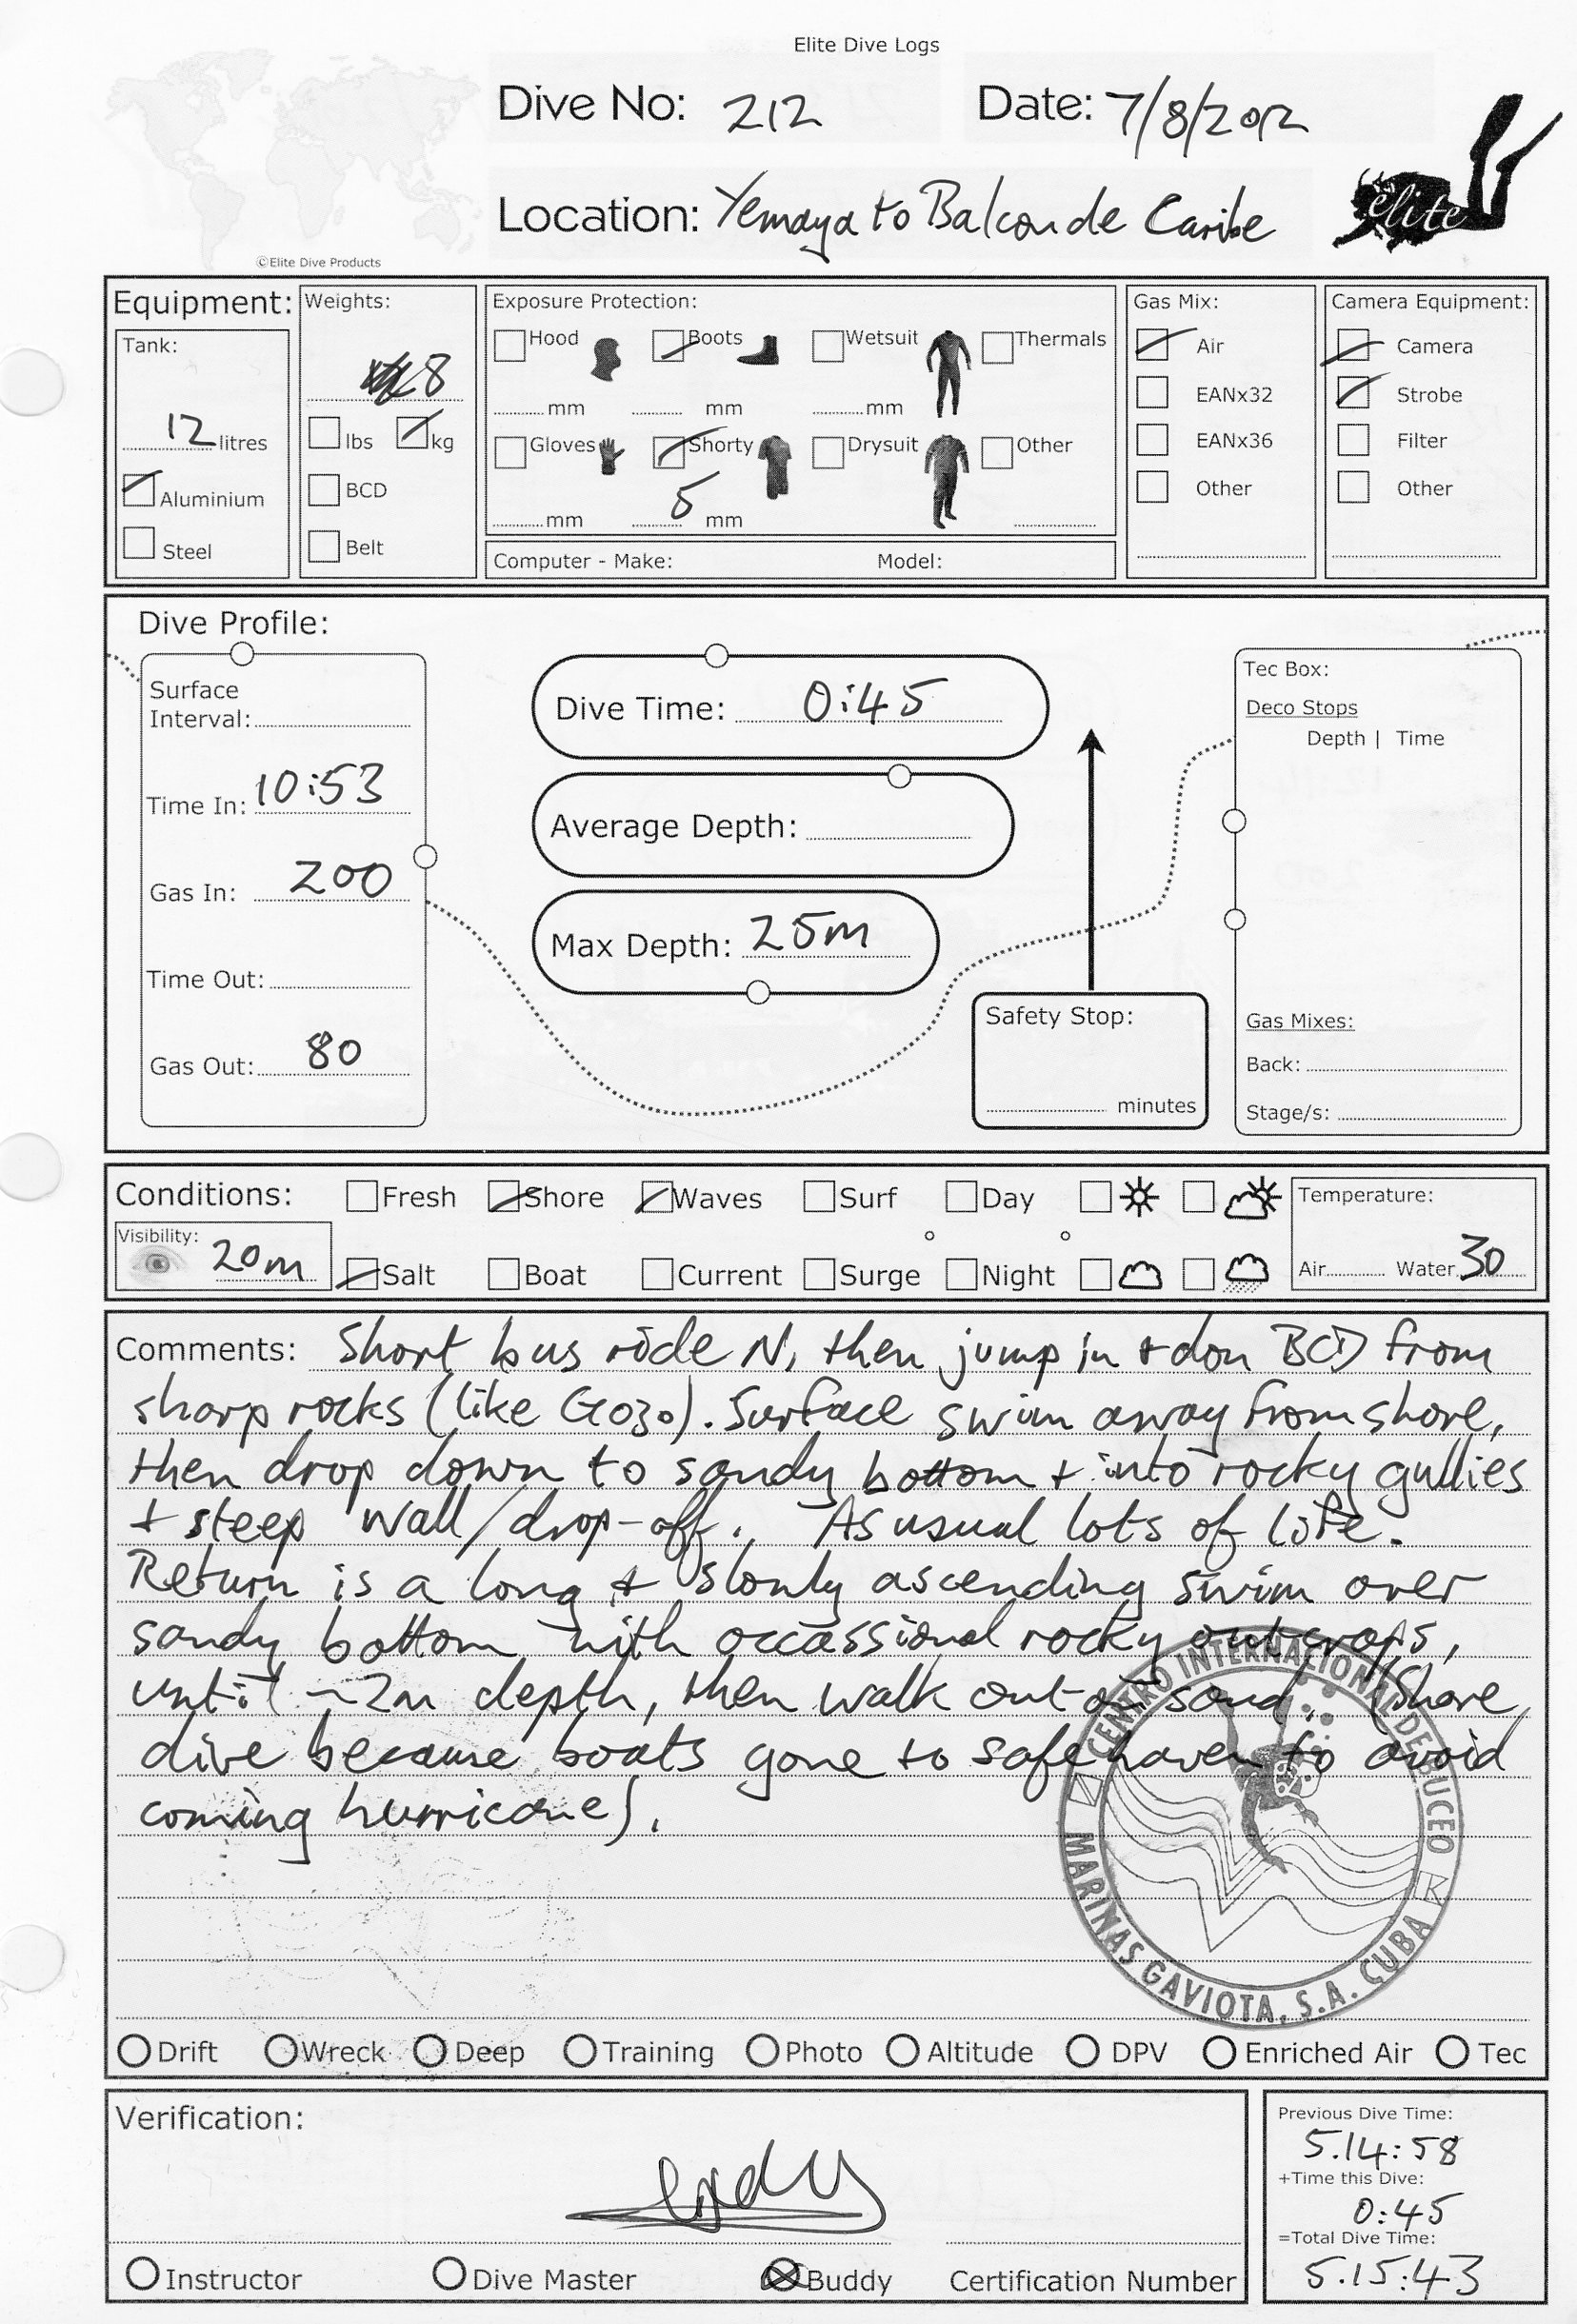 Elite Dive Logs
Dive No: 212 Date: 7/8/2012
Location: Yemaya to Balcon de Caribe
elite
©Elite Dive Products
Equipment:
Tank:
12 litres
Aluminium
Steel
Weights:
8
lbs kg
BCD
Belt
Exposure Protection:
Hood Boots Wetsuit Thermals
mm mm mm
Gloves Shorty Drysuit Other
mm 5 mm
Computer - Make: Model:
Gas Mix:
Air
EANx32
EANx36
Other
Camera Equipment:
Camera
Strobe
Filter
Other
Dive Profile:
Surface
Interval:
Time In: 10:53
Gas In: 200
Time Out:
Gas Out: 80
Dive Time: 0:45
Average Depth:
Max Depth: 25m
Safety Stop:
minutes
Tec Box:
Deco Stops
Depth | Time
Gas Mixes:
Back:
Stage/s:
Conditions: Fresh Shore Waves Surf Day
Visibility: 20m
Salt Boat Current Surge Night
Temperature:
Air Water 30
Comments: Short bus ride N, then jump in + don BCD from
sharp rocks (like Gozo). Surface swim away from shore,
then drop down to sandy bottom + into rocky gullies
+ steep wall/drop-off. As usual lots of life.
Return is a long + slowly ascending swim over
sandy bottom with occassional rocky outcrops,
until ~2m depth, then walk out on sand. (Shore
dive because boats gone to safe haven to avoid
coming hurricane).
CENTRO INTERNACIONAL DE BUCEO
MARINAS GAVIOTA, S.A. CUBA
Drift Wreck Deep Training Photo Altitude DPV Enriched Air Tec
Verification:
Instructor Dive Master Buddy Certification Number
Previous Dive Time:
5.14:58
+Time this Dive:
0:45
=Total Dive Time:
5.15:43